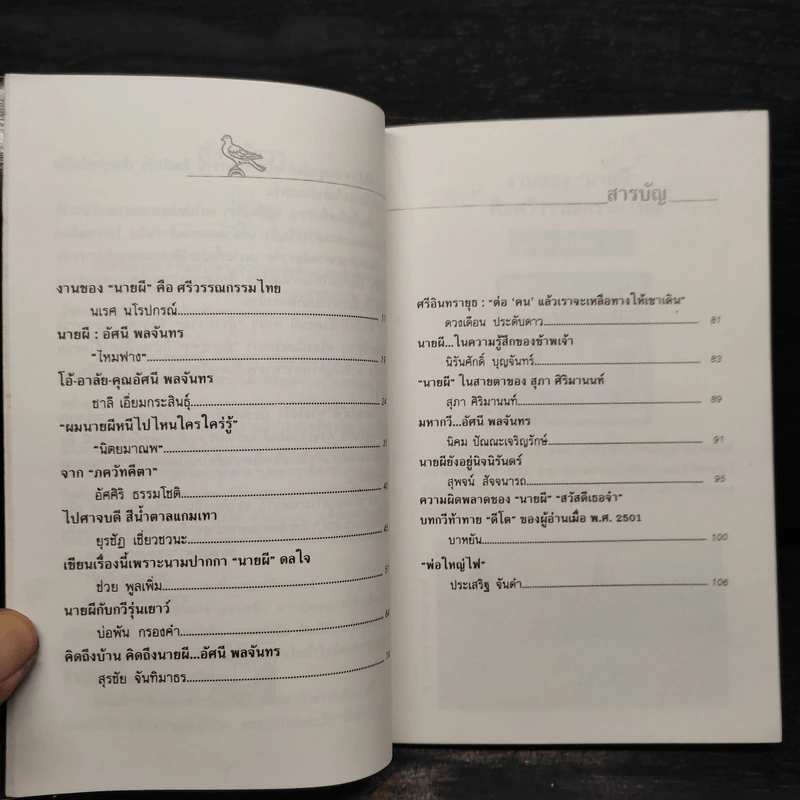 งานของ “นายผี” คือ ศรีวรรณกรรมไทย
นเรศ นโรปกรณ์ 11
นายผี : อัศนี พลจันทร
“ไหมฟาง”
โอ้-อาลัย-คุณอัศนี พลจันทร
ชาลี เอี่ยมกระสินธุ์
“ผมนายผีหนีไปไหนใครใคร่รู้”
“นิตยมาณพ”
จาก “ภควัทคีตา”
อัศศิริ ธรรมโชติ
ไปศาจบดี สีน้ำตาลแกมเทา
ยุรชัฏ เชี่ยวชวนะ
เขียนเรื่องนี้เพราะนามปากกา “นายผี” ดลใจ
ช่วย พูลเพิ่ม
นายผีกับกวีรุ่นเยาว์
บ่อพัน กรองคำ
คิดถึงบ้าน คิดถึงนายผี...อัศนี พลจันทร
สุรชัย จันทิมาธร
สารบัญ
ศรีอินทรายุธ : “ต่อ ‘คน’ แล้วเราจะเหลือทางให้เขาเดิน”
ดวงเดือน ประดับดาว 81
นายผี...ในความรู้สึกของข้าพเจ้า
นิรันศักดิ์ บุญจันทร์ 83
“นายผี” ในสายตาของ สุภา ศิริมานนท์
สุภา ศิริมานนท์ 89
มหากวี...อัศนี พลจันทร
นิคม ปัณณะเจริญรักษ์ 91
นายผียังอยู่นิจนิรันดร์
สุพจน์ สัจจนารถ 95
ความผิดพลาดของ “นายผี” “สวัสดีเธอจ๋า”
บทกวีท้าทาย “ตีโต” ของผู้อ่านเมื่อ พ.ศ. 2501
บาหยัน 100
“พ่อใหญ่ไฟ”
ประเสริฐ จันดำ 106